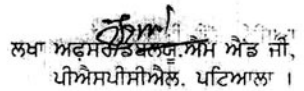 ਲਖਾ ਅਫਸਰ/ਡਬਲਯੂ.ਐਮ ਐਂਡ ਜੀ,
ਪੀਐਸਪੀਸੀਐਲ, ਪਟਿਆਲਾ ।